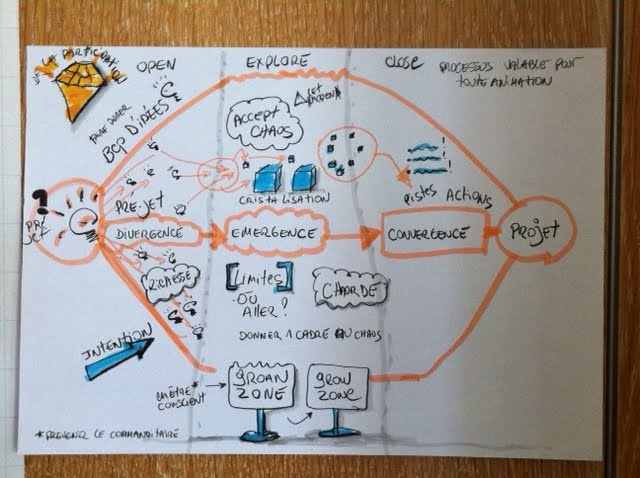 DE LA PARTICIPATION
OPEN
EXPLORE
CLOSE
PROCESSUS VALABLE POUR
TOUTE ANIMATION
FAIRE
BCP D'IDÉES
ACCEPT
CHAOS
LET
HAPPEN
PISTES ACTIONS
CRISTALISATION
?
PRE-JET
PRE
JET
DIVERGENCE
EMERGENCE
CONVERGENCE
PROJET
RICHESSE
[LIMITES]
OÙ
ALLER?
CHAORDE
DONNER 1 CADRE AU CHAOS
INTENTION
EN ÊTRE*
CONSCIENT
GROAN
ZONE
GROW
ZONE
*PREVENIR LE COMMANDITAIRE